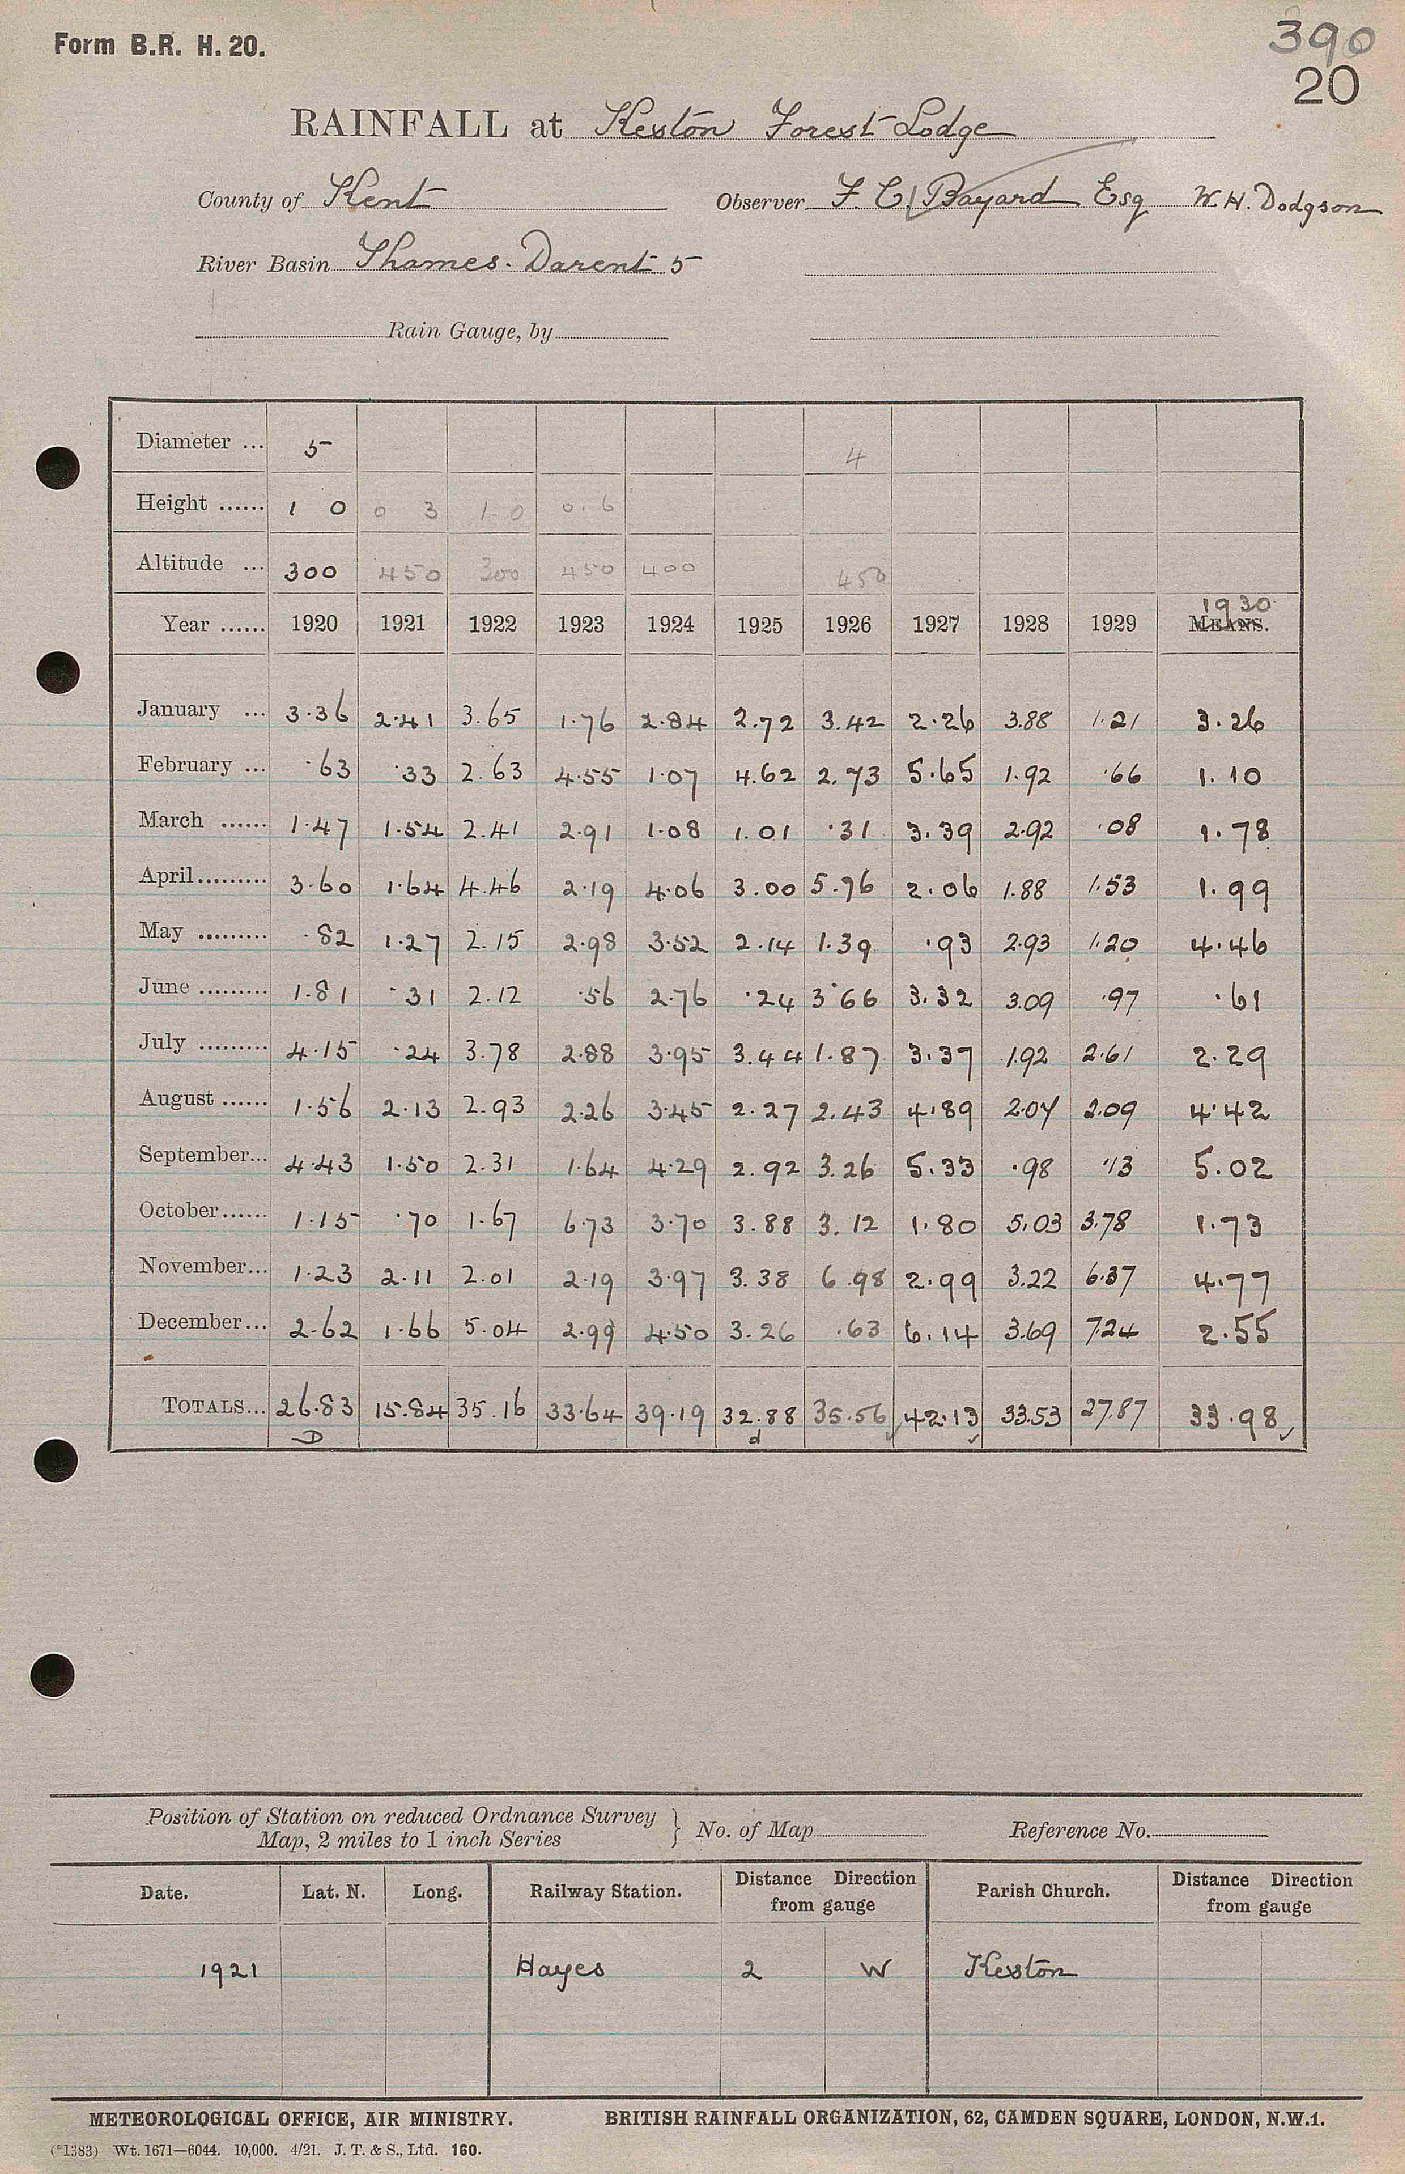 Form B.R. H. 20.
390
20
RAINFALL at Keston Forest Lodge
County of Kent Observer F. C. Bayard Esq W. H. Dodgson
River Basin Thames. Darent 5
Rain Gauge, by
Diameter ... 5 4
Height ...... 1 0 0 3 1 0 0.6
Altitude ... 300 450 300 450 400 450
Year ...... 1920 1921 1922 1923 1924 1925 1926 1927 1928 1929 MEANS. 1930
January ... 3.36 2.41 3.65 1.76 2.84 2.72 3.42 2.26 3.88 1.21 3.26
February ... .63 .33 2.63 4.55 1.07 4.62 2.73 5.65 1.92 .66 1.10
March ...... 1.47 1.54 2.41 2.91 1.08 1.01 .31 3.39 2.92 .08 1.78
April......... 3.60 1.64 4.46 2.19 4.06 3.00 5.76 2.06 1.88 1.53 1.99
May ......... .82 1.27 2.15 2.98 3.52 2.14 1.39 .93 2.93 1.20 4.46
June ......... 1.81 .31 2.12 .56 2.76 .24 3.66 3.32 3.09 .97 .61
July ......... 4.15 .24 3.78 2.88 3.95 3.44 1.87 3.37 1.92 2.61 2.29
August ...... 1.56 2.13 2.93 2.26 3.45 2.27 2.43 4.89 2.07 2.09 4.42
September... 4.43 1.50 2.31 1.64 4.29 2.92 3.26 5.33 .98 .13 5.02
October...... 1.15 .70 1.67 6.73 3.70 3.88 3.12 1.80 5.03 3.78 1.73
November... 1.23 2.11 2.01 2.19 3.97 3.38 6.98 2.99 3.22 6.37 4.77
December... 2.62 1.66 5.04 2.99 4.50 3.26 .63 6.14 3.69 7.24 2.55
TOTALS... 26.83 15.84 35.16 33.64 39.19 32.88 35.56 42.13 33.53 27.87 33.98
D d
Position of Station on reduced Ordnance Survey
Map, 2 miles to 1 inch Series } No. of Map Reference No.
Date. Lat. N. Long. Railway Station. Distance Direction from gauge Parish Church. Distance Direction from gauge
1921 Hayes 2 W Keston
METEOROLOGICAL OFFICE, AIR MINISTRY. BRITISH RAINFALL ORGANIZATION, 62, CAMDEN SQUARE, LONDON, N.W.1.
(*1383) Wt. 1671—6044. 10,000. 4/21. J. T. & S., Ltd. 160.